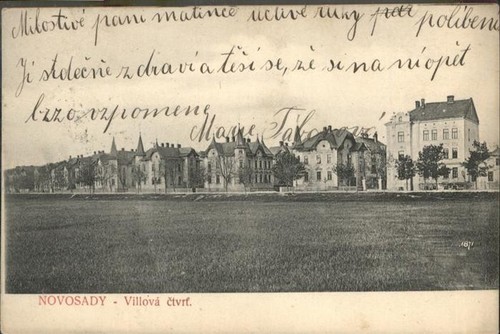 Milostivé paní matince uctivé ruky políbení
Jí srdečně zdraví a těší se, že si na ní opět
brzo vzpomene
Marie
NOVOSADY - Villová čtvrť.